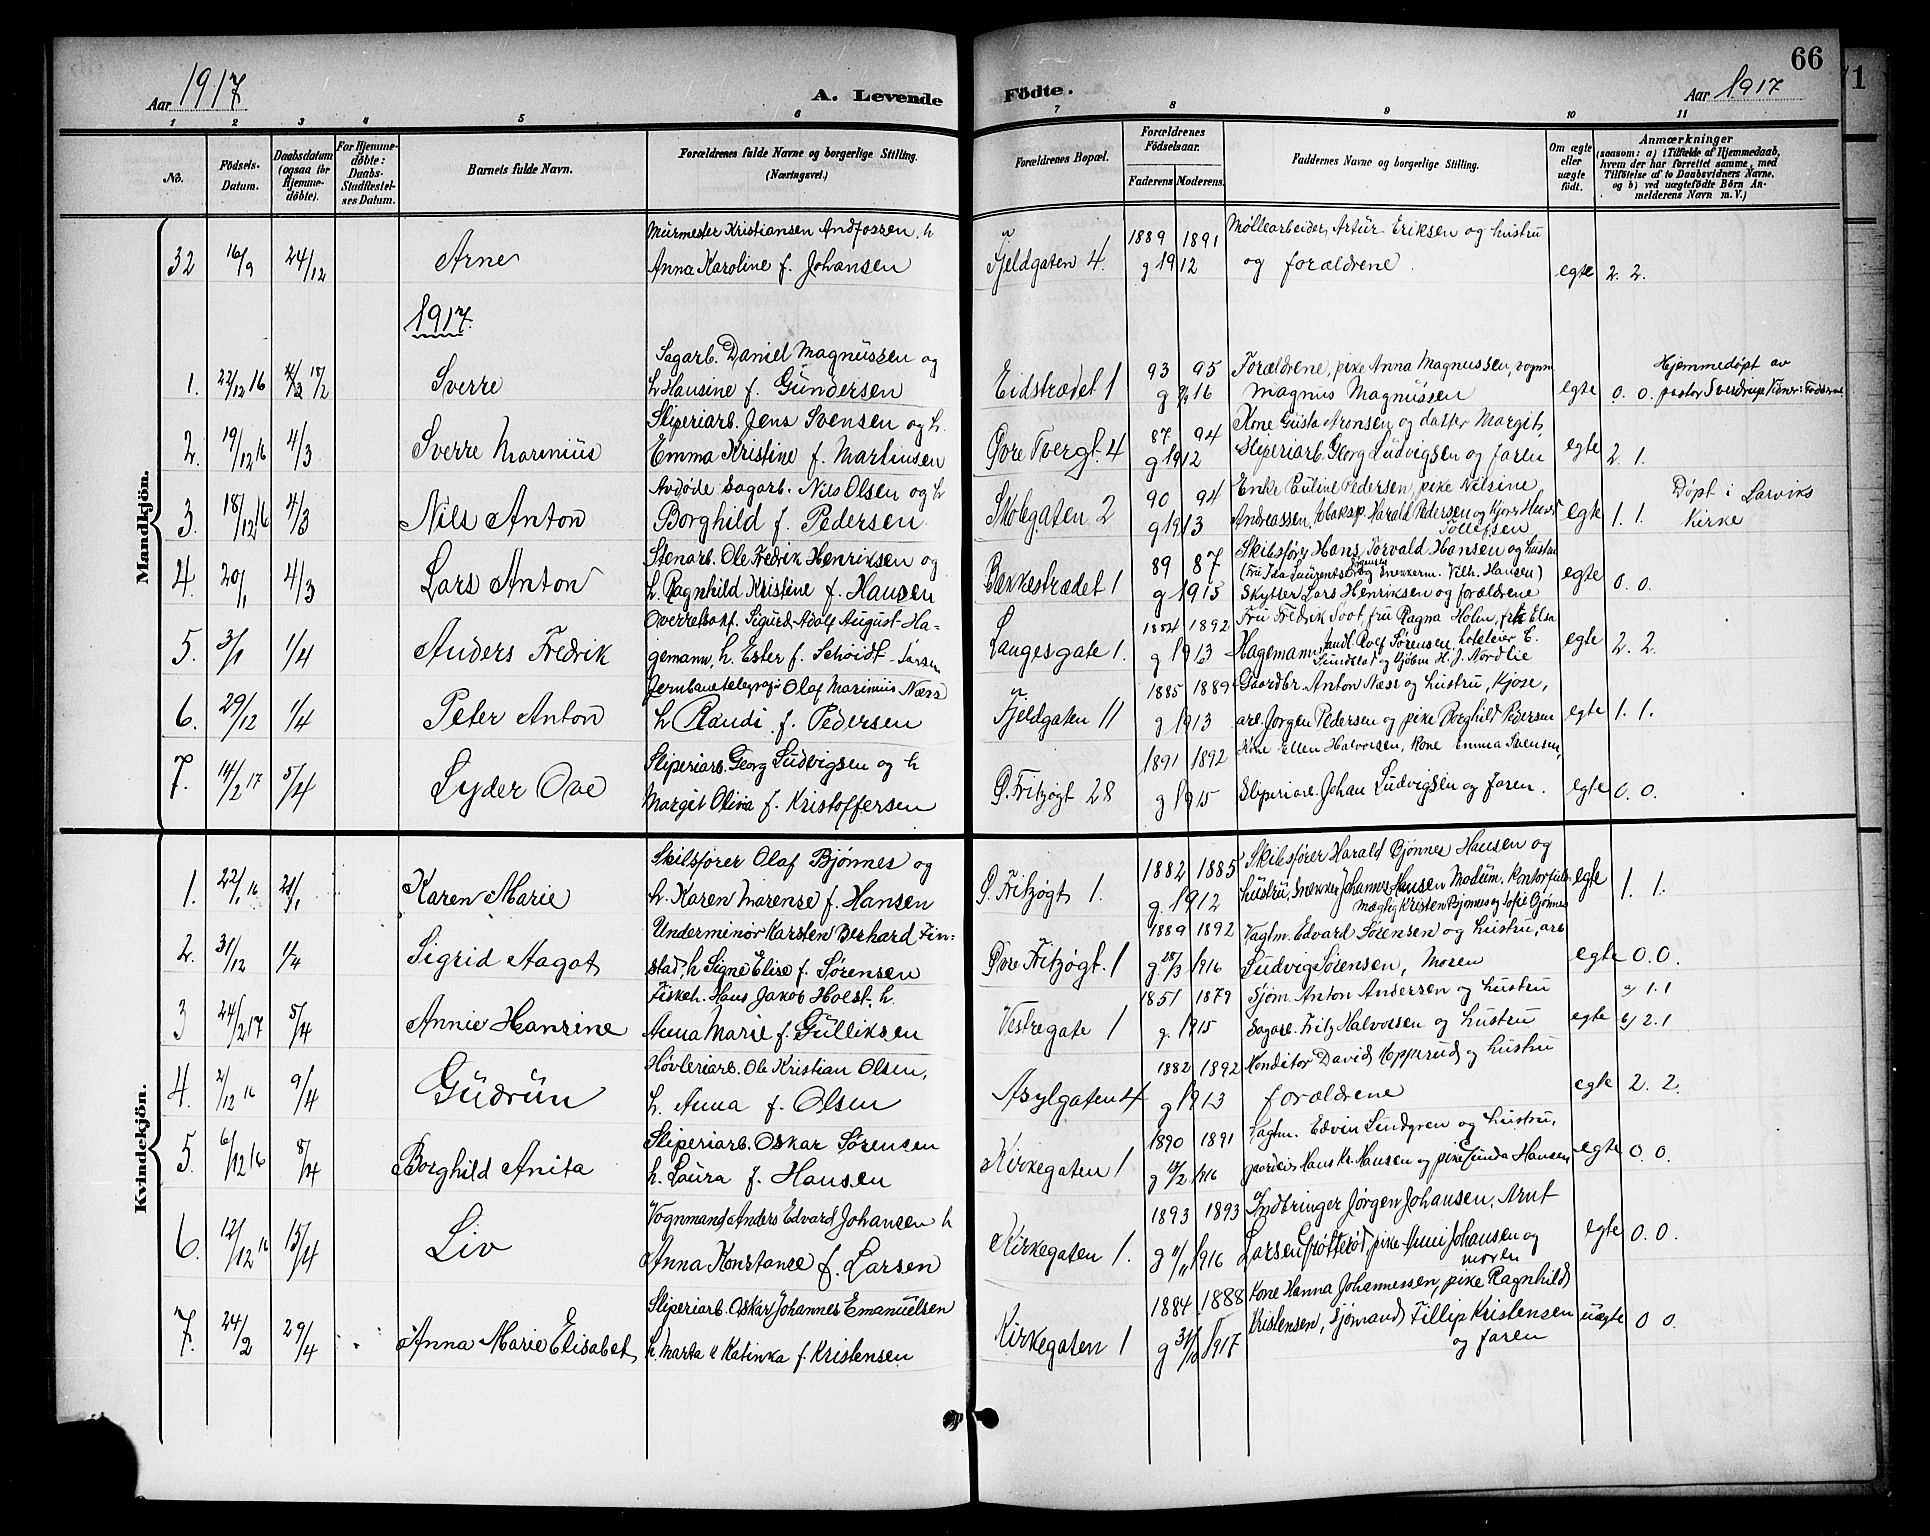 66
Aar 1917
A. Levende Födte.
Aar 1917
1 2 3 4 5 6 7 8 9 10 11
No.
Födsels-Datum.
Daabsdatum (ogsaa for Hjemme-døbte).
For Hjemme-døbte: Daabs-Stadfæstel-ses Datum.
Barnets fulde Navn.
Forældrenes fulde Navne og borgerlige Stilling. (Næringsvei.)
Forældrenes Bopæl.
Forældrenes Födselsaar.
Faderens. Moderens.
Faddernes Navne og borgerlige Stilling.
Om ægte eller uægte födt.
Anmærkninger
(saasom: a) i Tilfælde af Hjemmedaab, hvem der har forrettet samme, med Tilföielse af to Daabsvidners Navne, og b) ved uægtefödte Börn An-melderens Navn m. V.)
Mandkjön.
32 16/9 24/12 Arne
Murmester Kristiansen Andfossen, h
Anna Karoline f. Johansen
Fjeldgaten 4.
1889 1891
g 1912
Møllearbeider Artur Eriksen og hustru
og forældrene.
egte 2. 2.
1917.
1. 22/12 16 Sverre
Sagarb. Daniel Magnussen og
h. Hansine f. Gundersen
Eidstrædet 1
93 95
16
Forældrene, pike Anna Magnussen,
Magnus Magnussen
egte 0. 0.
Hjemmedøpt av
pastor Sverdrup
2. 19/12 16 4/3 Sverre Marinius
Sliperiarb. Jens Svensen og h.
Emma Kristine f. Martinsen
Øvre Tvergt. 4
87 94
g 1912
Kone Gusta Aronsen og datter Margit,
Sliperiarb. Georg Ludvigsen og faren
egte 2. 1.
3. 18/12 16 4/3 Nils Anton
Avdøde sagarb. Nils Olsen og h
Borghild f. Pedersen
Skolegaten 2
90 94
g 1913
Enke Pauline Pedersen, pike Nilsine
Andreassen, Harald Pedersen og
Tollefsen
egte 1. 1.
Døpt i Larviks
Kirke
4. 20/1 4/3 Lars Anton
Stenarb. Ole Fredrik Henriksen og
h. Ragnhild Kristine f. Hansen
Bækkestrædet 1
89 87
g 1915
Skibsfører Hans Torvald Hansen og hustru
(Fru Ida Laurentse og snekkerm. Vilh. Hansen)
Skytter Lars Henriksen og forældrene
egte 0. 0.
5. 3/1 1/4 Anders Fredrik
Overretssakf. Sigurd Adolf August Ha-
gemann, h. Ester f. Schøidt-Larsen
Langesgate 1.
1884 1892
g 1913
Fru Fredrik Soot, fru Ragna Holm, frk Elsa
Hagemann, Rolf Sørensen, hoteleier E.
Sundslot og Kjøbm H. J. Nordlie
egte 2. 2.
6. 29/12 1/4 Peter Anton
Jernbanetelegrafis Olaf Marinius Næss
h Randi f. Pedersen
Fjeldgaten 11
1885 1889
g 1913
Gaardbr. Anton Næss og hustru, Kjose,
arb. Jørgen Pedersen og pike Borghild Pedersen
egte 1. 1.
7. 14/2 17 5/4 Lyder Ove
Sliperiarb. Georg Ludvigsen og h
Margit Olivia f. Kristoffersen
Ø. Fritzøgt 28
1891 1892
g 1915
Kone Ellen Halvorsen, Kone Emma Svensen,
Sliperiarb. Johan Ludvigsen og faren.
egte 0. 0.
Kvindekjön.
1. 22/1 16 Karen Marie
Skibsfører Olaf Bjønnes og
h. Karen Marense f. Hansen
Ø. Fritzøgt 1.
1882 1885
g. 1912
Skibsfører Harald Bjønnes Hansen og
hustru, snekker Johannes Hansen Modum,
Kristen Bjønnes og Sofie Bjønnes
egte 1. 1.
2. 31/12 1/4 Sigrid Aagot
Underminør Karsten Berhard Fin-
stad, h Signe Elise f. Sørensen
Øvre Fritzøgt. 1
1889 1892
g 28/3 1916
Vagtm. Edvard Sørensen og hustru, arb
Ludvig Sørensen, Moren
egte 0. 0.
3 24/2 17 5/4 Annie Hansine
Fiskeh. Hans Jakob Holst h.
Anna Marie f. Gulliksen
Vestregate 1
1851 1879
g. 1915
Sjøm. Anton Andersen og hustru
Sagarb. Fritz Halvorsen og hustru
egte a) 1. 1 b) 2. 1
4. 2/12 16 9/4 Gudrun
Høvleriarb. Ole Kristian Olsen,
h. Anna f. Olsen
Asylgaten 4
1882 1892
g 1913
Konditor David Hopperud og hustru
forældrene
egte 2. 2.
5. 6/12 16 8/4 Borghild Anita
Sliperiarb. Oskar Sørensen
h. Laura f. Hansen
Kirkegaten 1
1890 1891
g 1916
Vagtm. Edvin Lundgren og hustru,
gaardeier Hans Kr. Hansen og pike Gunda Hansen
egte 0. 0.
6. 12/12 16 15/4 Liv
Vognmand Anders Edvard Johansen h
Anna Konstance f. Larsen
Kirkegaten 1.
1893 1893
g 11/11 1916
Indbringer Jørgen Johansen, Arnt
Larsen Grøtterød, pike Anni Johansen og
moren
egte 0. 0.
7. 24/2 29/4 Anna Marie Elisabet
Sliperiarb. Oskar Johannes Emanuelsen
h. Marta Katinka f. Kristensen
Kirkegaten 1
1884 1888
g 31/10 1917
Kone Hanna Johannessen, pike Ragnhild
Kristensen, Sjømand Fillip Kristensen
og faren
uægte 0 0.